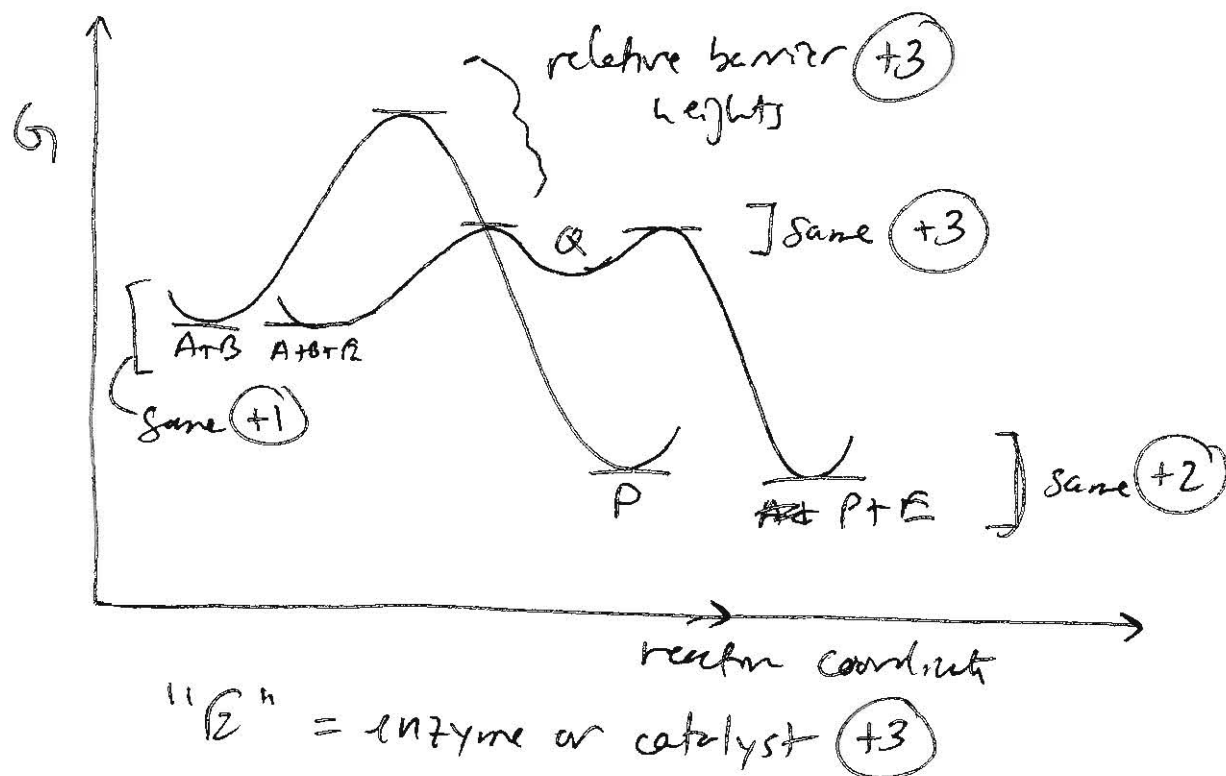 relative barrier +3
heights
G
Q
] same +3
A+B A+B+E
same +1
P
P+E
same +2
reaction coordinate
"E" = enzyme or catalyst +3